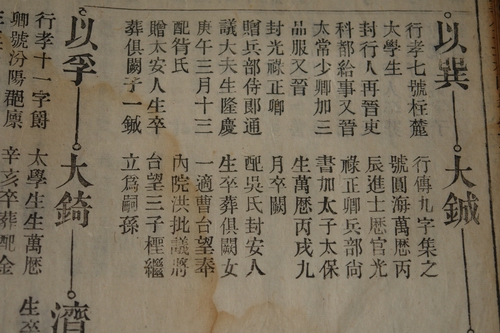 以巽
大鋮
行孝七號
太學生
封行人再晉吏
科都給事又晉
太常少卿加三
品服又晉
封光祿正卿
贈兵部侍郎通
議大夫生隆慶
庚午三月十三
配氏
贈太安人生卒
葬俱闕子一鋮
行傳九字集之
號圓海萬曆丙
辰進士歷官光
祿正卿兵部尙
書加太子太保
生萬曆丙戌九
月卒闕
配吳氏封安人
生卒葬俱闕女
一適曹台望奉
內院洪批議將
台望三子繼
立爲嗣孫
以孚
大錡
濟
行孝十一字爵
卿號汾陽邑廩
太學生生萬曆
辛亥卒葬配金
生卒